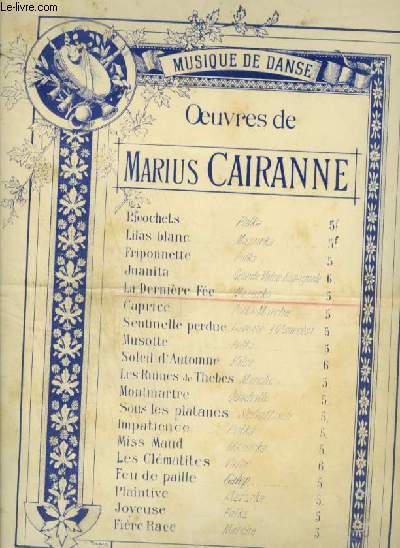 Le-livre.com
MUSIQUE DE DANSE
Œuvres de
MARIUS CAIRANNE
Ricochets Polka 5f
Lilas blanc Mazurka 5f
Friponnette Polka 5
Juanita Grande Valse Espagnole 6
La Dernière Fée Mazurka 5
Caprice Polka Marche 5
Sentinelle perdue 5
Musotte Polka 5
Soleil d'Automne Valse 6
Les Ruines de Thèbes Marche 5
Montmartre Quadrille 5
Sous les platanes 5
Impatience Polka 5
Miss Maud Mazurka 5
Les Clématites Valse 6
Feu de paille Galop 5
Plaintive Mazurka 5
Joyeuse Polka 5
Fière Race Marche 5